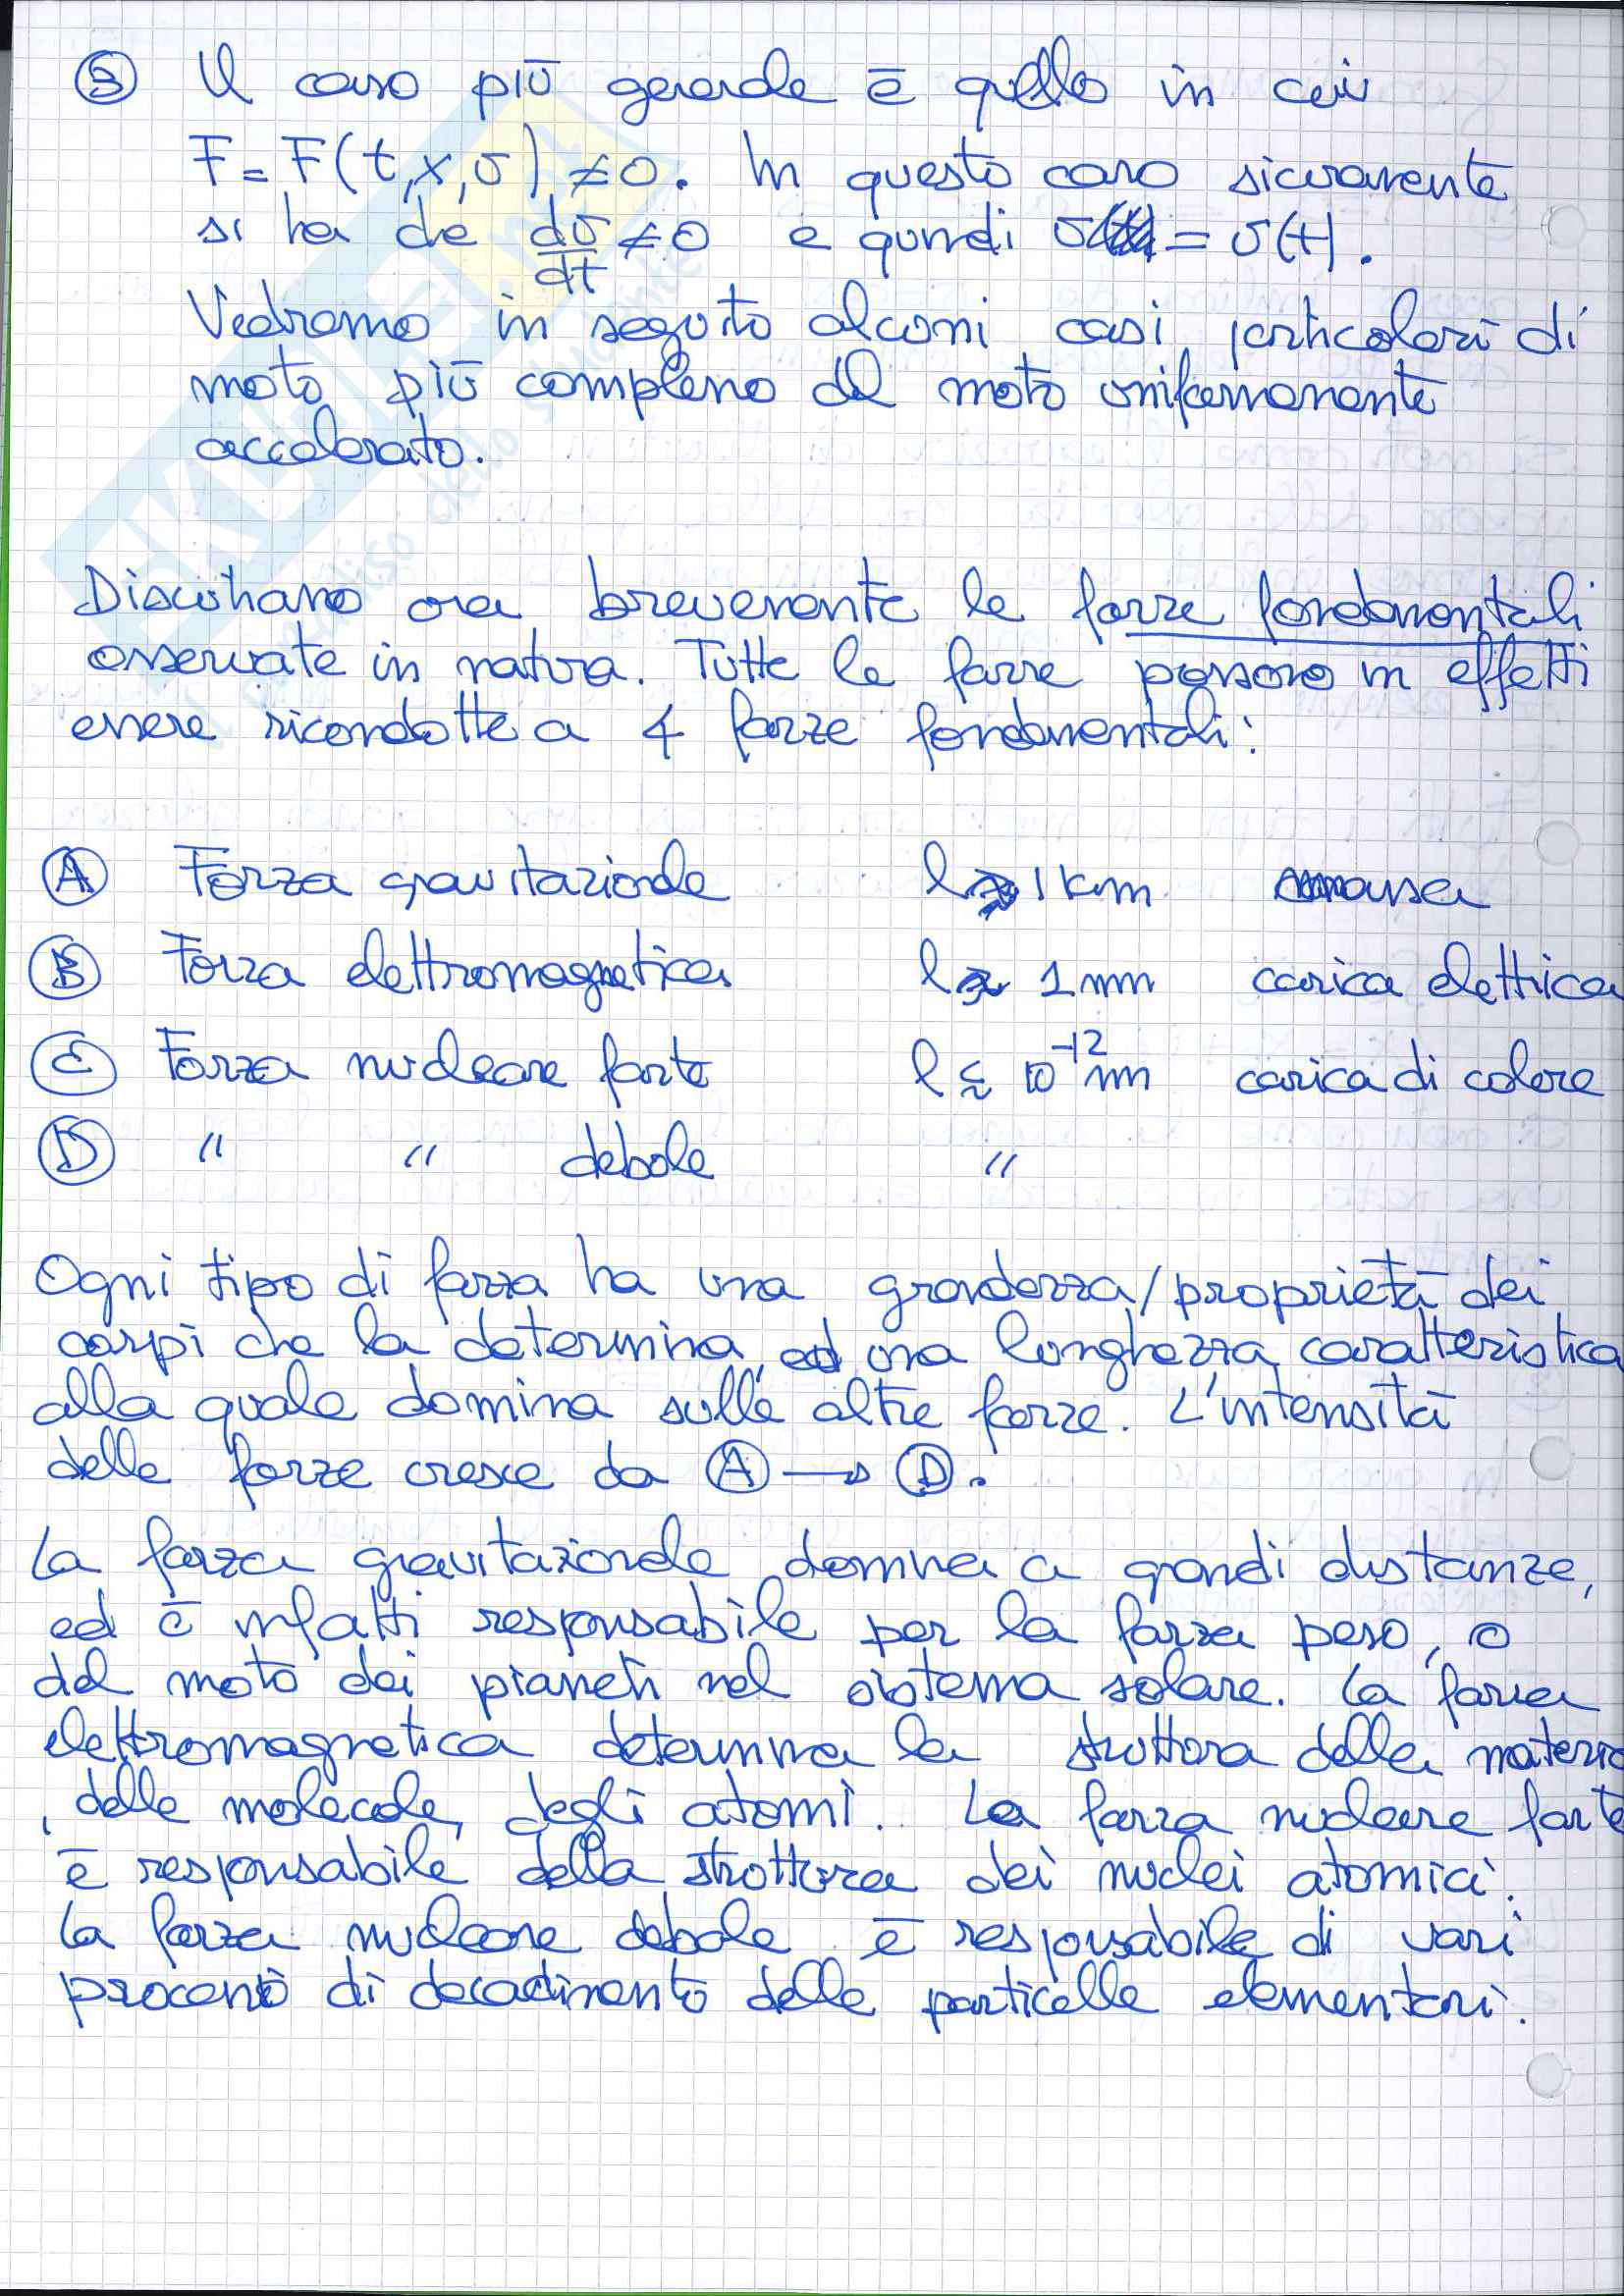 ③ Il caso più generale è quello in cui
F = F(t,x,v) ≠ 0. In questo caso sicuramente
si ha che dv/dt ≠ 0 e quindi v = v(t).
Vedremo in seguito alcuni casi particolari di
moto più complesso del moto uniformemente
accelerato.
Discutiamo ora brevemente le forze fondamentali
osservate in natura. Tutte le forze possono in effetti
essere ricondotte a 4 forze fondamentali:
Ⓐ Forza gravitazionale l ≳ 1 km massa
Ⓑ Forza elettromagnetica l ≳ 1 mm carica elettrica
Ⓒ Forza nucleare forte l ≲ 10^-12 mm carica di colore
Ⓓ " " debole "
Ogni tipo di forza ha una grandezza/proprietà dei
corpi che la determina, ed una lunghezza caratteristica
alla quale domina sulle altre forze. L'intensità
delle forze cresce da Ⓐ → Ⓓ.
La forza gravitazionale domina a grandi distanze,
ed è infatti responsabile per la forza peso, o
del moto dei pianeti nel sistema solare. La forza
elettromagnetica determina la struttura della materia
, delle molecole, degli atomi. La forza nucleare forte
è responsabile della struttura dei nuclei atomici.
La forza nucleare debole è responsabile di vari
processi di decadimento delle particelle elementari.